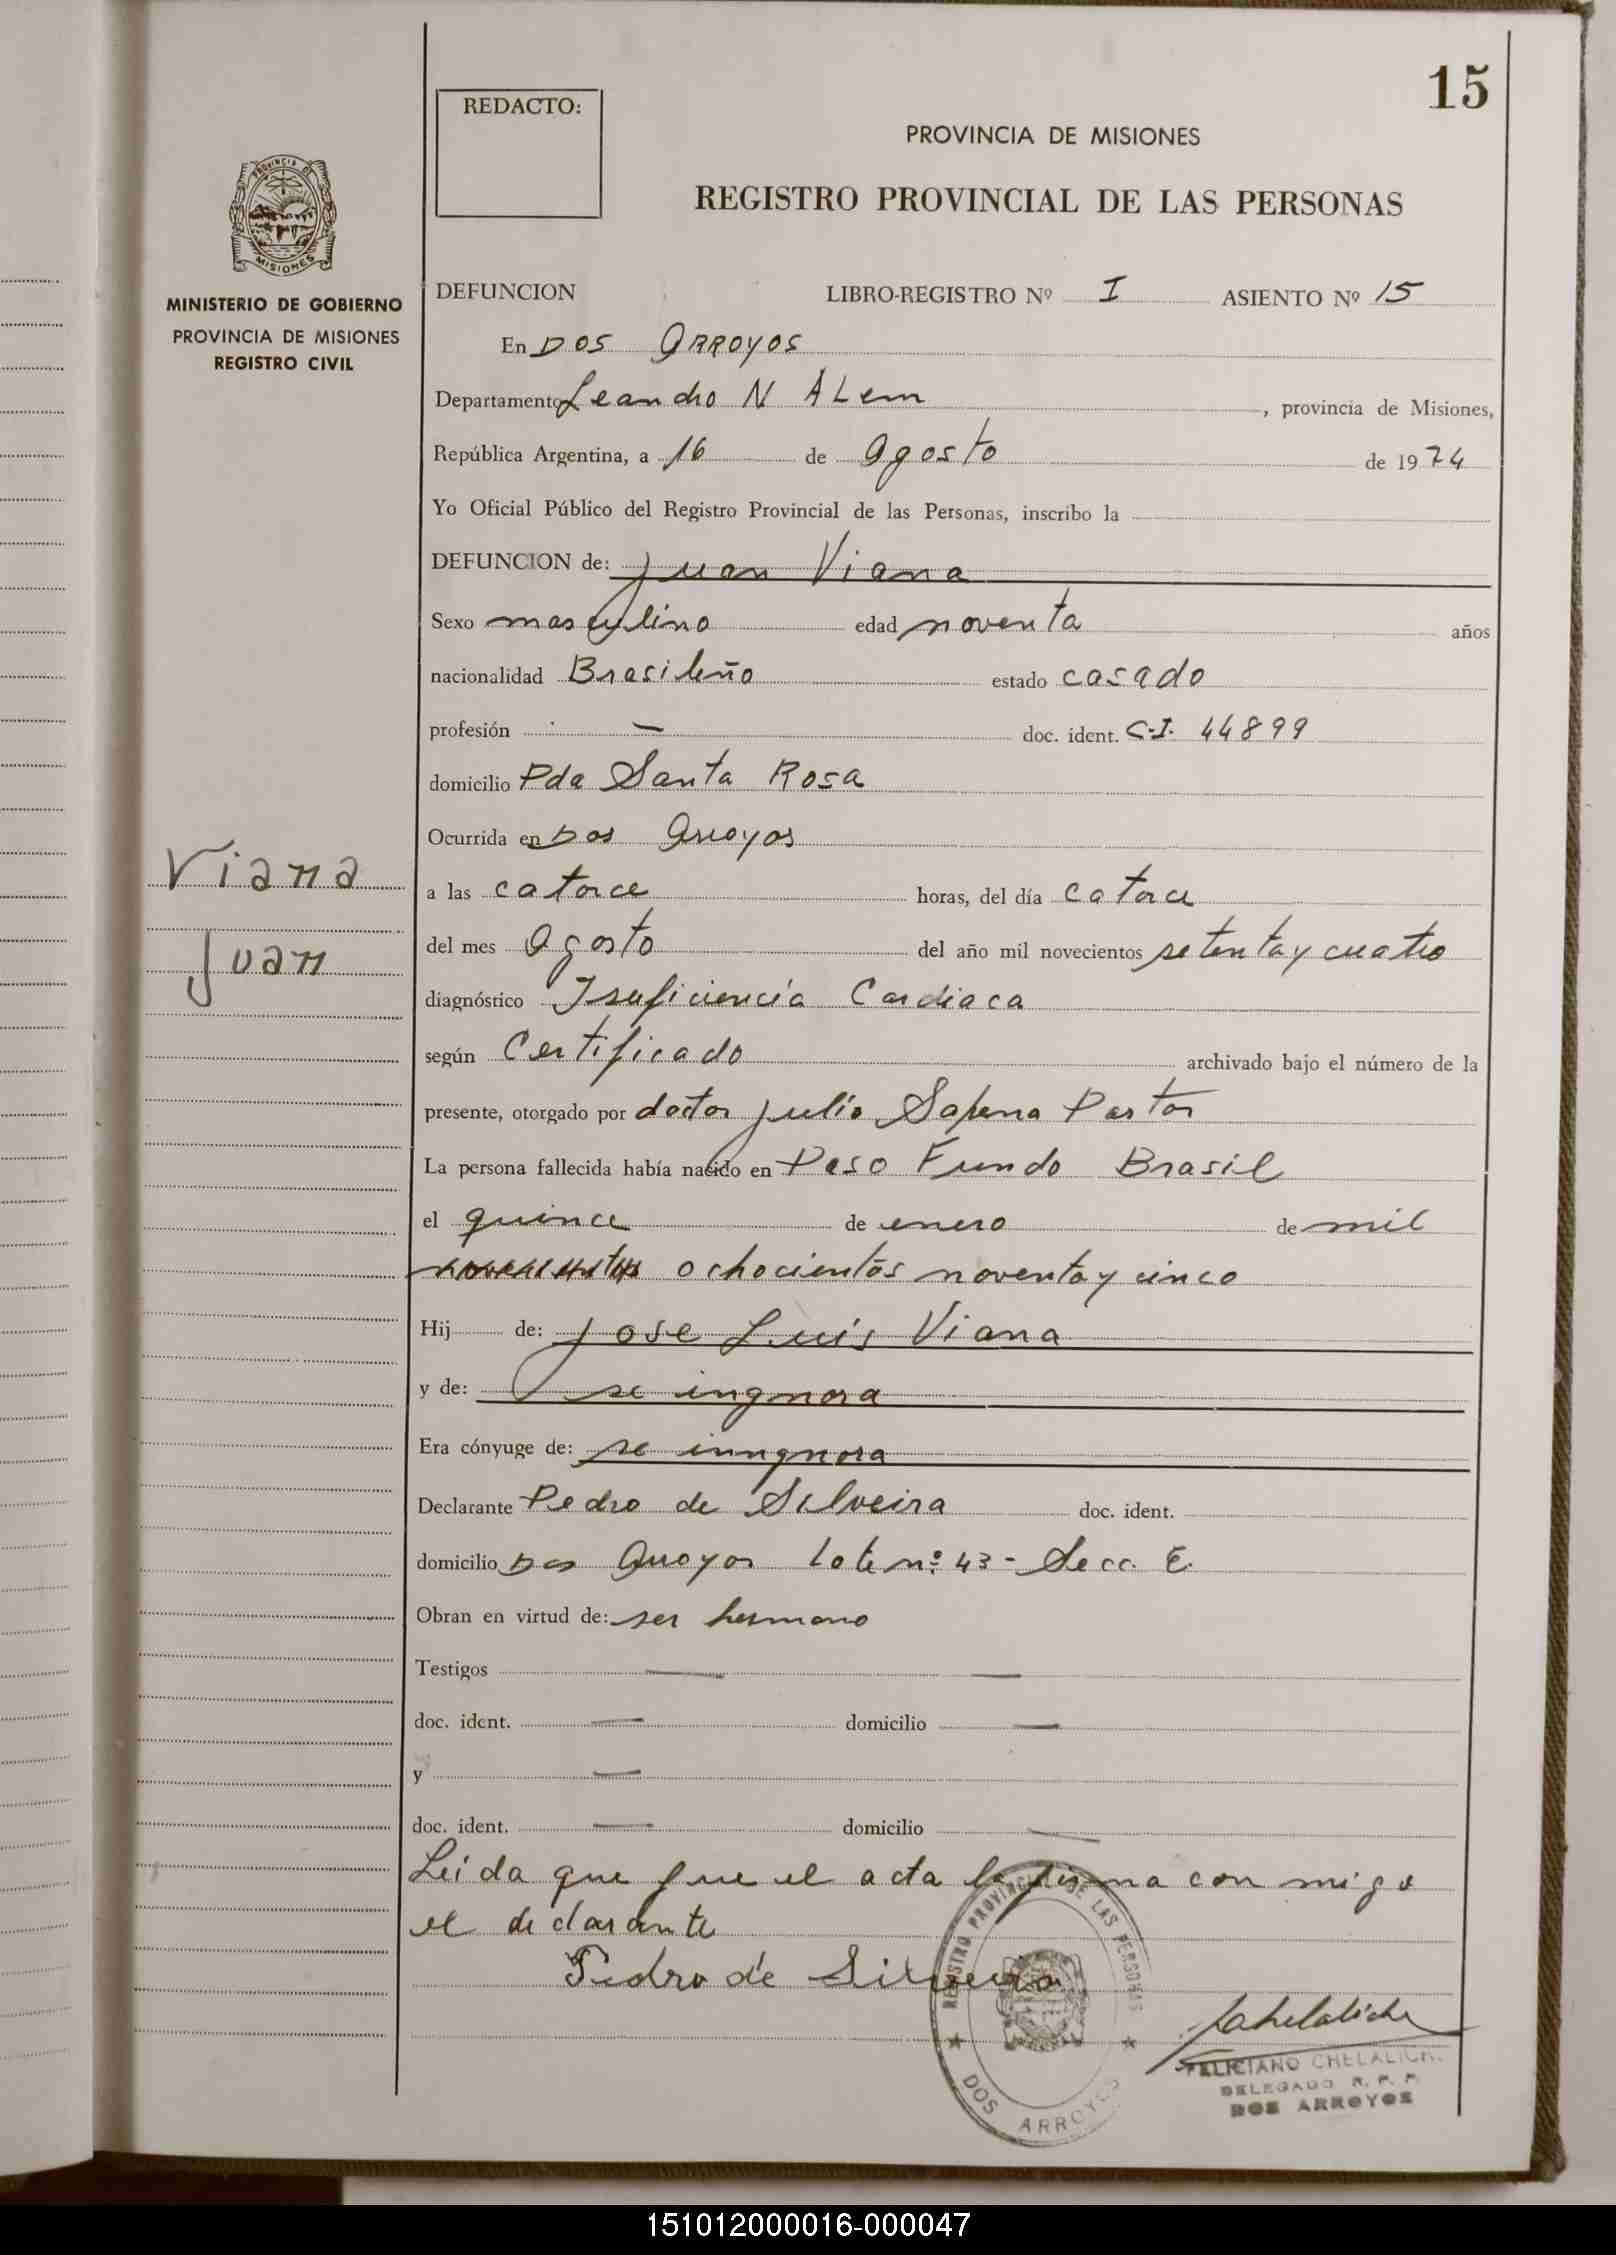 15
REDACTO:
PROVINCIA DE MISIONES
REGISTRO PROVINCIAL DE LAS PERSONAS
PROVINCIA DE
MISIONES
MINISTERIO DE GOBIERNO
PROVINCIA DE MISIONES
REGISTRO CIVIL
DEFUNCION LIBRO-REGISTRO Nº I ASIENTO Nº 15
En DOS ARROYOS
Departamento Leandro N ALem, provincia de Misiones,
República Argentina, a 16 de Agosto de 1974
Yo Oficial Público del Registro Provincial de las Personas, inscribo la
DEFUNCION de: Juan Viana
Sexo masculino edad noventa años
nacionalidad Brasileño estado casado
profesión — doc. ident. C.I. 44899
domicilio Pda Santa Rosa
Ocurrida en Dos Arroyos
Viana
a las catorce horas, del día catorce
Juan
del mes Agosto del año mil novecientos setenta y cuatro
diagnóstico Isuficiencia Cardiaca
según Certificado archivado bajo el número de la
presente, otorgado por doctor Julio Sapena Pastor
La persona fallecida había nacido en Paso Fundo Brasil
el quince de enero de mil
novecientos ochocientos noventa y cinco
Hij de: Jose Luis Viana
y de: se ingnora
Era cónyuge de: se inngnora
Declarante Pedro de Silveira doc. ident.
domicilio Dos Arroyos Lote nº 43 - Secc. E.
Obran en virtud de: ser hermano
Testigos — —
doc. ident. — domicilio —
y —
doc. ident. — domicilio —
Leida que fue el acta la firma con migo
el declarante
Pedro de Silveira
REGISTRO PROVINCIAL DE LAS PERSONAS
DOS ARROYOS
FELICIANO CHELALICH.
DELEGADO R. P. P.
DOS ARROYOS
151012000016-000047